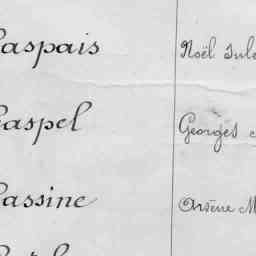 aspais Noël Jule
aspel Georges
assine Arsène M